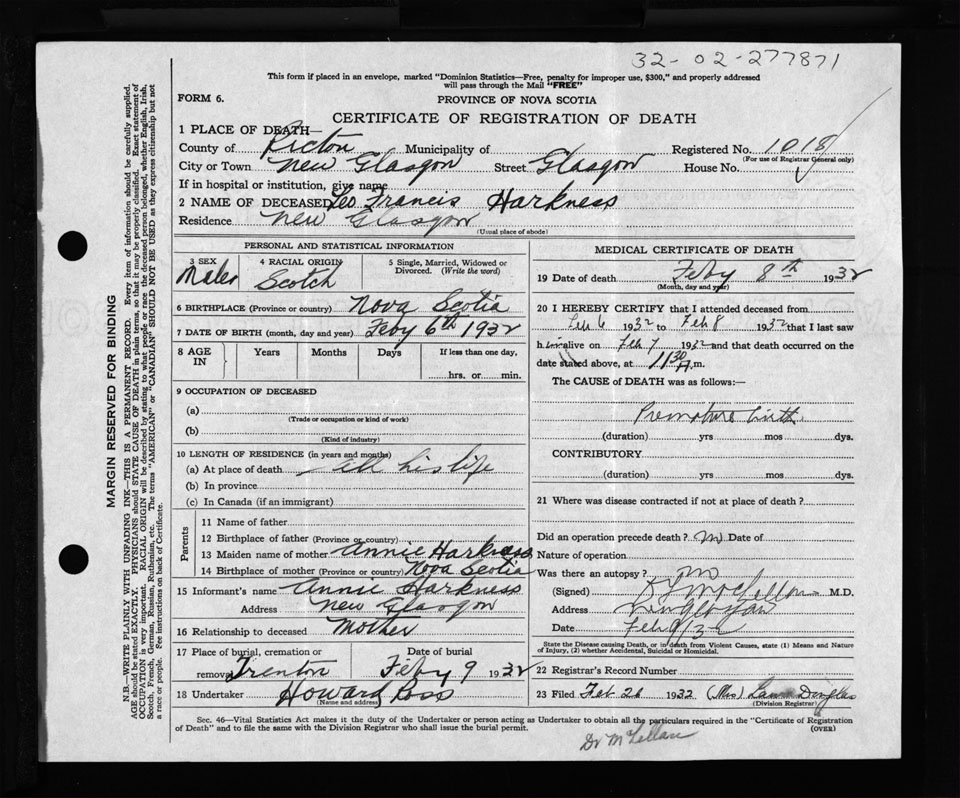 32-02-277871
This form if placed in an envelope, marked "Dominion Statistics—Free, penalty for improper use, $300," and properly addressed
will pass through the Mail "FREE"
FORM 6.
PROVINCE OF NOVA SCOTIA
CERTIFICATE OF REGISTRATION OF DEATH
1 PLACE OF DEATH—
County of Pictou Municipality of Registered No. 1018
(For use of Registrar General only)
City or Town New Glasgow Street Glasgow House No.
If in hospital or institution, give name
2 NAME OF DECEASED Leo Francis Harkness
Residence New Glasgow
(Usual place of abode)
PERSONAL AND STATISTICAL INFORMATION
3 SEX 4 RACIAL ORIGIN 5 Single, Married, Widowed or
Divorced. (Write the word)
Male Scotch
6 BIRTHPLACE (Province or country) Nova Scotia
7 DATE OF BIRTH (month, day and year) Feby 6th 1932
8 AGE IN Years Months Days If less than one day,
hrs. or min.
9 OCCUPATION OF DECEASED
(a)
(Trade or occupation or kind of work)
(b)
(Kind of industry)
10 LENGTH OF RESIDENCE (in years and months)
(a) At place of death all his life
(b) In province
(c) In Canada (if an immigrant)
Parents
11 Name of father
12 Birthplace of father (Province or country)
13 Maiden name of mother Annie Harkness
14 Birthplace of mother (Province or country) Nova Scotia
15 Informant's name Annie Harkness
Address New Glasgow
16 Relationship to deceased Mother
17 Place of burial, cremation or Date of burial
removal Trenton Feby 9 1932
18 Undertaker Howard Ross
(Name and address)
MEDICAL CERTIFICATE OF DEATH
19 Date of death Feby 8th 1932
(Month, day and year)
20 I HEREBY CERTIFY that I attended deceased from
Feb 6 1932 to Feb 8 1932 that I last saw
h im alive on Feb 7 1932 and that death occurred on the
date stated above, at 11 30 A.m.
The CAUSE of DEATH was as follows:—
Premature birth
(duration) yrs mos dys.
CONTRIBUTORY
(duration) yrs mos dys.
21 Where was disease contracted if not at place of death?
Did an operation precede death? no Date of
Nature of operation
Was there an autopsy? no
(Signed) M.D.
Address
Date Feb 9/32
State the Disease causing Death, or in death from Violent Causes, state (1) Means and Nature
of Injury, (2) whether Accidental, Suicidal or Homicidal.
22 Registrar's Record Number
23 Filed Feb 26 1932 (Mrs)
(Division Registrar)
Sec. 46—Vital Statistics Act makes it the duty of the Undertaker or person acting as Undertaker to obtain all the particulars required in the "Certificate of Registration
of Death" and to file the same with the Division Registrar who shall issue the burial permit.
(OVER)
Dr McLellan
MARGIN RESERVED FOR BINDING
N.B.—WRITE PLAINLY WITH UNFADING INK—THIS IS A PERMANENT RECORD. Every item of information should be carefully supplied.
AGE should be stated EXACTLY. PHYSICIANS should STATE CAUSE OF DEATH in plain terms, so that it may be properly classified. Exact statement of
OCCUPATION is very important. RACIAL ORIGIN will be described by stating to what people or race the deceased person belonged, whether English, Irish,
Scotch, French, German, Russian, Ruthenian, etc. The terms "AMERICAN" or "CANADIAN" SHOULD NOT BE USED as they express citizenship but not
a race or people. Fee instructions on back of Certificate.